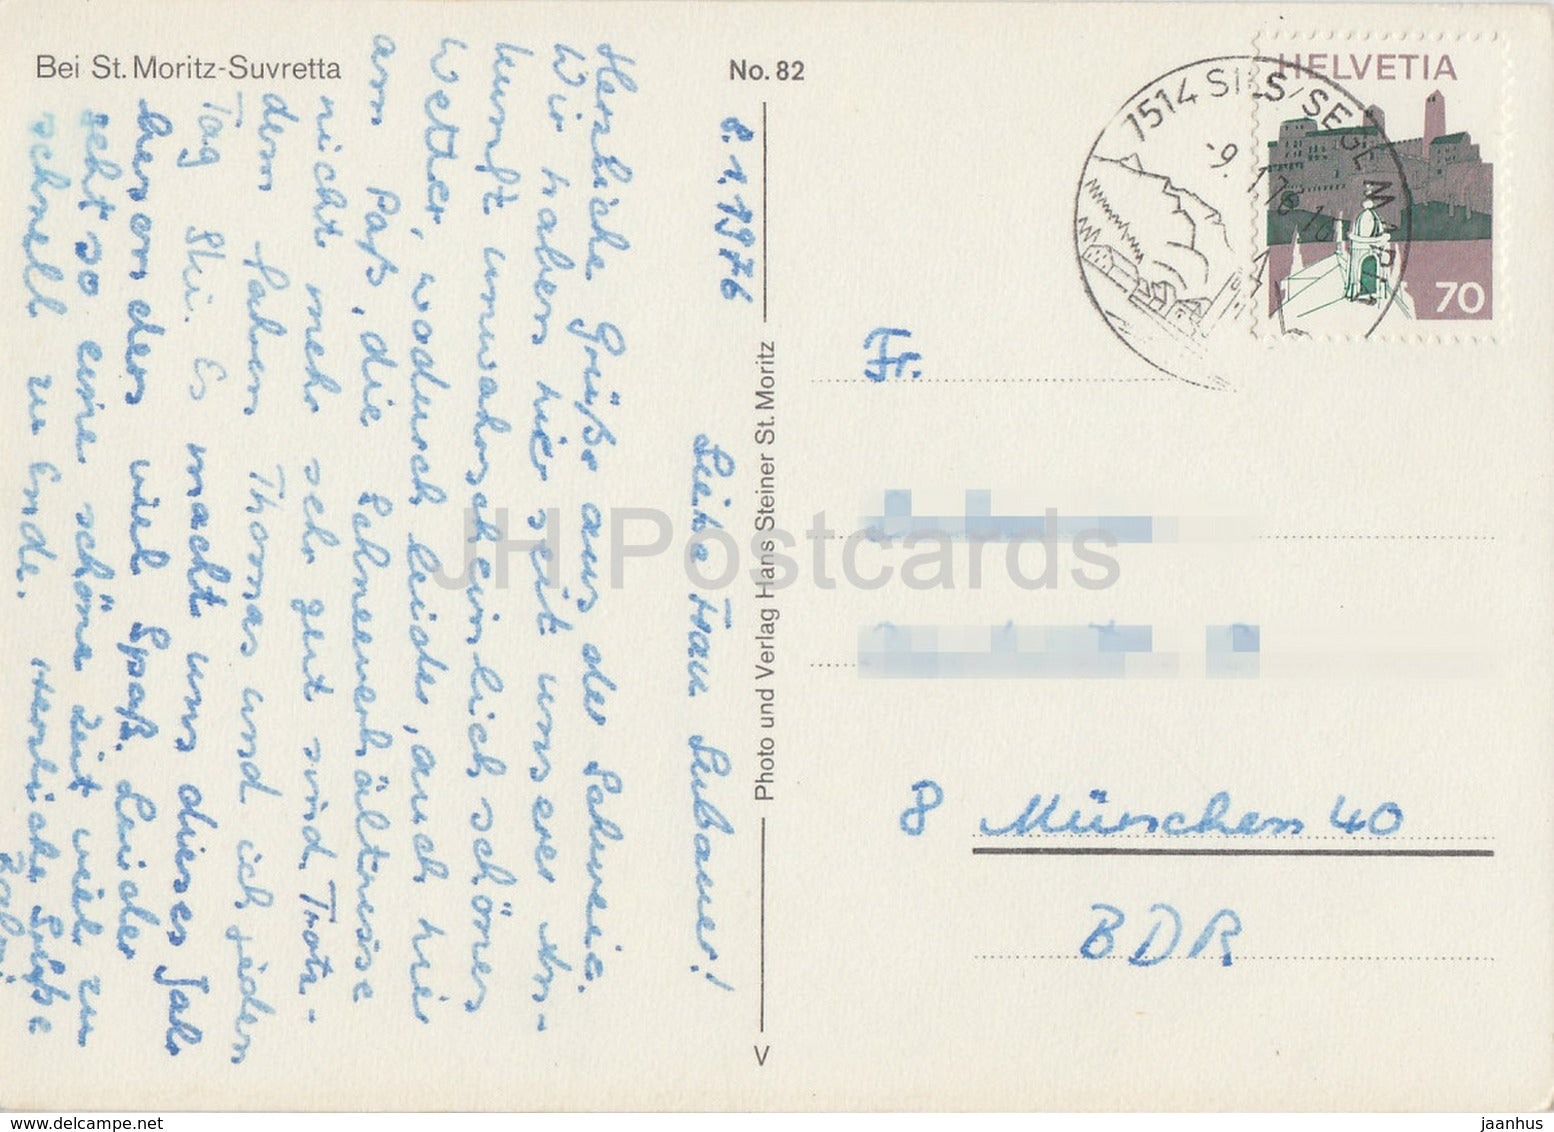 Bei St. Moritz-Suvretta
No. 82
8.1.1976
Liebe Frau Lebauer!
Herzliche Grüße aus der Schweiz.
Wir haben hier seit unserer An-
kunft unwahrscheinlich schönes
Wetter, wodurch leider, auch hier
am Paß, die Schneeverhältnisse
nicht mehr sehr gut sind. Trotz-
dem fahren Thomas und ich jeden
Tag Ski. Es macht uns dieses Jahr
besonders viel Spaß. Leider
geht so eine schöne Zeit viel zu
schnell zu Ende. Herzliche Grüße
Photo und Verlag Hans Steiner St. Moritz
V
HELVETIA
70
7514 SILS/SEGL MARIA
-9.1.76
Fr.
8 München 40
BDR
JH Postcards
www.delcampe.net
jaanhus